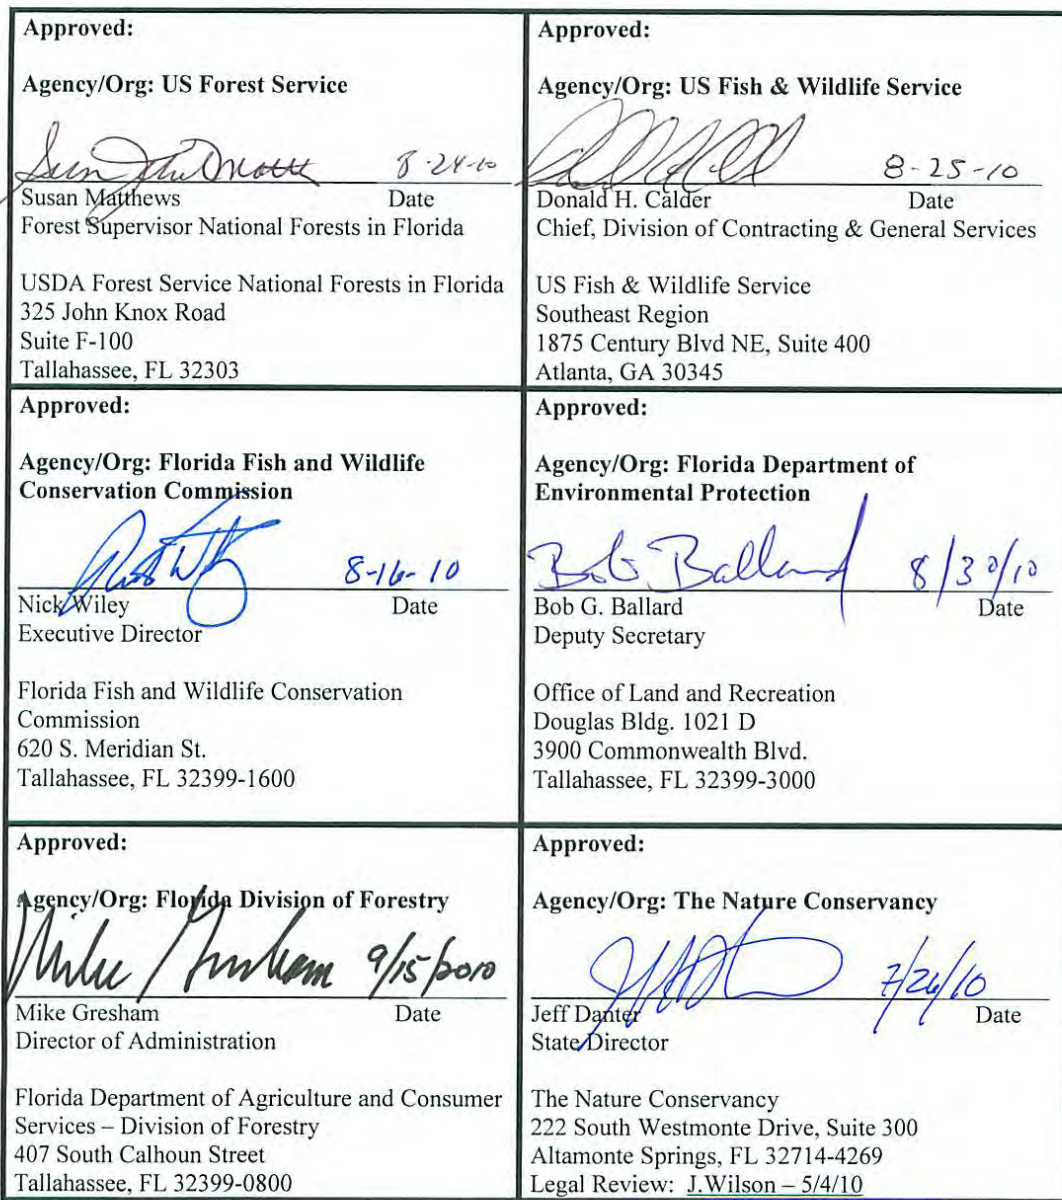 Approved:
Agency/Org: US Forest Service
8-24-10
Susan Matthews Date
Forest Supervisor National Forests in Florida
USDA Forest Service National Forests in Florida
325 John Knox Road
Suite F-100
Tallahassee, FL 32303
Approved:
Agency/Org: US Fish & Wildlife Service
8-25-10
Donald H. Calder Date
Chief, Division of Contracting & General Services
US Fish & Wildlife Service
Southeast Region
1875 Century Blvd NE, Suite 400
Atlanta, GA 30345
Approved:
Agency/Org: Florida Fish and Wildlife
Conservation Commission
8-16-10
Nick Wiley Date
Executive Director
Florida Fish and Wildlife Conservation
Commission
620 S. Meridian St.
Tallahassee, FL 32399-1600
Approved:
Agency/Org: Florida Department of
Environmental Protection
Bob Ballard 8/30/10
Bob G. Ballard Date
Deputy Secretary
Office of Land and Recreation
Douglas Bldg. 1021 D
3900 Commonwealth Blvd.
Tallahassee, FL 32399-3000
Approved:
Agency/Org: Florida Division of Forestry
Mike Gresham 9/15/2010
Mike Gresham Date
Director of Administration
Florida Department of Agriculture and Consumer
Services – Division of Forestry
407 South Calhoun Street
Tallahassee, FL 32399-0800
Approved:
Agency/Org: The Nature Conservancy
7/26/10
Jeff Danter Date
State Director
The Nature Conservancy
222 South Westmonte Drive, Suite 300
Altamonte Springs, FL 32714-4269
Legal Review: J.Wilson – 5/4/10